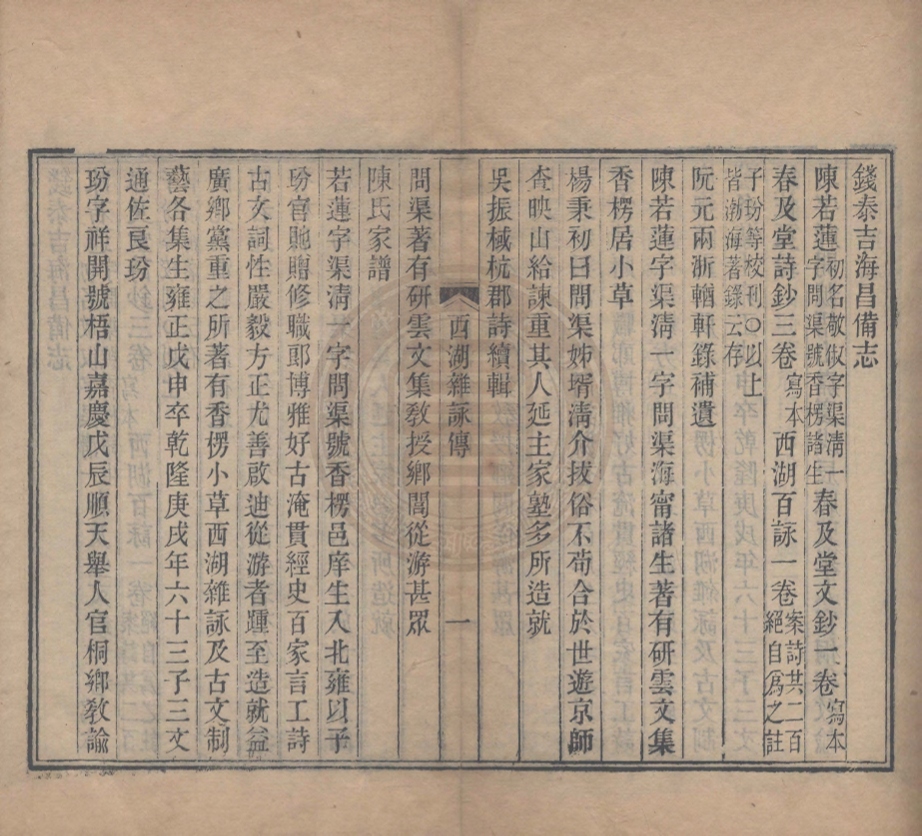 錢泰吉海昌備志
陳若蓮初名敬俶字渠淸一字問渠號香楞諸生春及堂文鈔一卷寫本
春及堂詩鈔三卷寫本西湖百詠一卷案詩共二百絕自爲之註
子玢等校刋○以上皆渤海著錄云存
阮元兩浙輶軒錄補遺
陳若蓮字渠淸一字問渠海甯諸生著有研雲文集
香楞居小草
楊秉初曰問渠姊壻淸介拔俗不苟合於世遊京師
查映山給諫重其人延主家塾多所造就
吳振棫杭郡詩續輯
西湖雜詠傳
一
問渠著有研雲文集敎授鄉閭從游甚眾
陳氏家譜
若蓮字渠淸一字問渠號香楞邑庠生入北雍以子
玢官貤贈修職郎博雅好古淹貫經史百家言工詩
古文詞性嚴毅方正尤善啟迪從游者踵至造就益
廣鄉黨重之所著有香楞小草西湖雜詠及古文制
藝各集生雍正戊申卒乾隆庚戌年六十三子三文
通佐良玢
玢字祥開號梧山嘉慶戊辰順天舉人官桐鄉敎諭